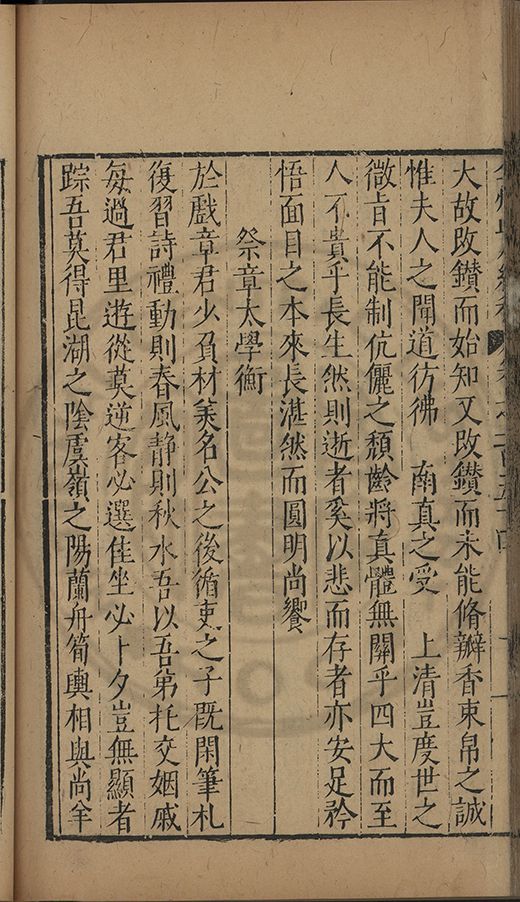 大故改鑚而始知又改鑚而未能脩瓣香束帛之誠
惟夫人之聞道彷彿　南真之受　上清豈度世之
微旨不能制伉儷之頹齡將真體無關乎四大而至
人不貴乎長生然則逝者奚以悲而存者亦安足矜
悟面目之本來長湛然而圓明尚饗
祭章太學衡
於戲章君少負材美名公之後循吏之子既閑筆札
復習詩禮動則春風静則秋水吾以吾弟托交姻戚
每過君里遊從莫逆客必選佳坐必卜夕豈無顯者
踪吾莫得昆湖之陰虞嶺之陽蘭舟筍輿相與尚羊